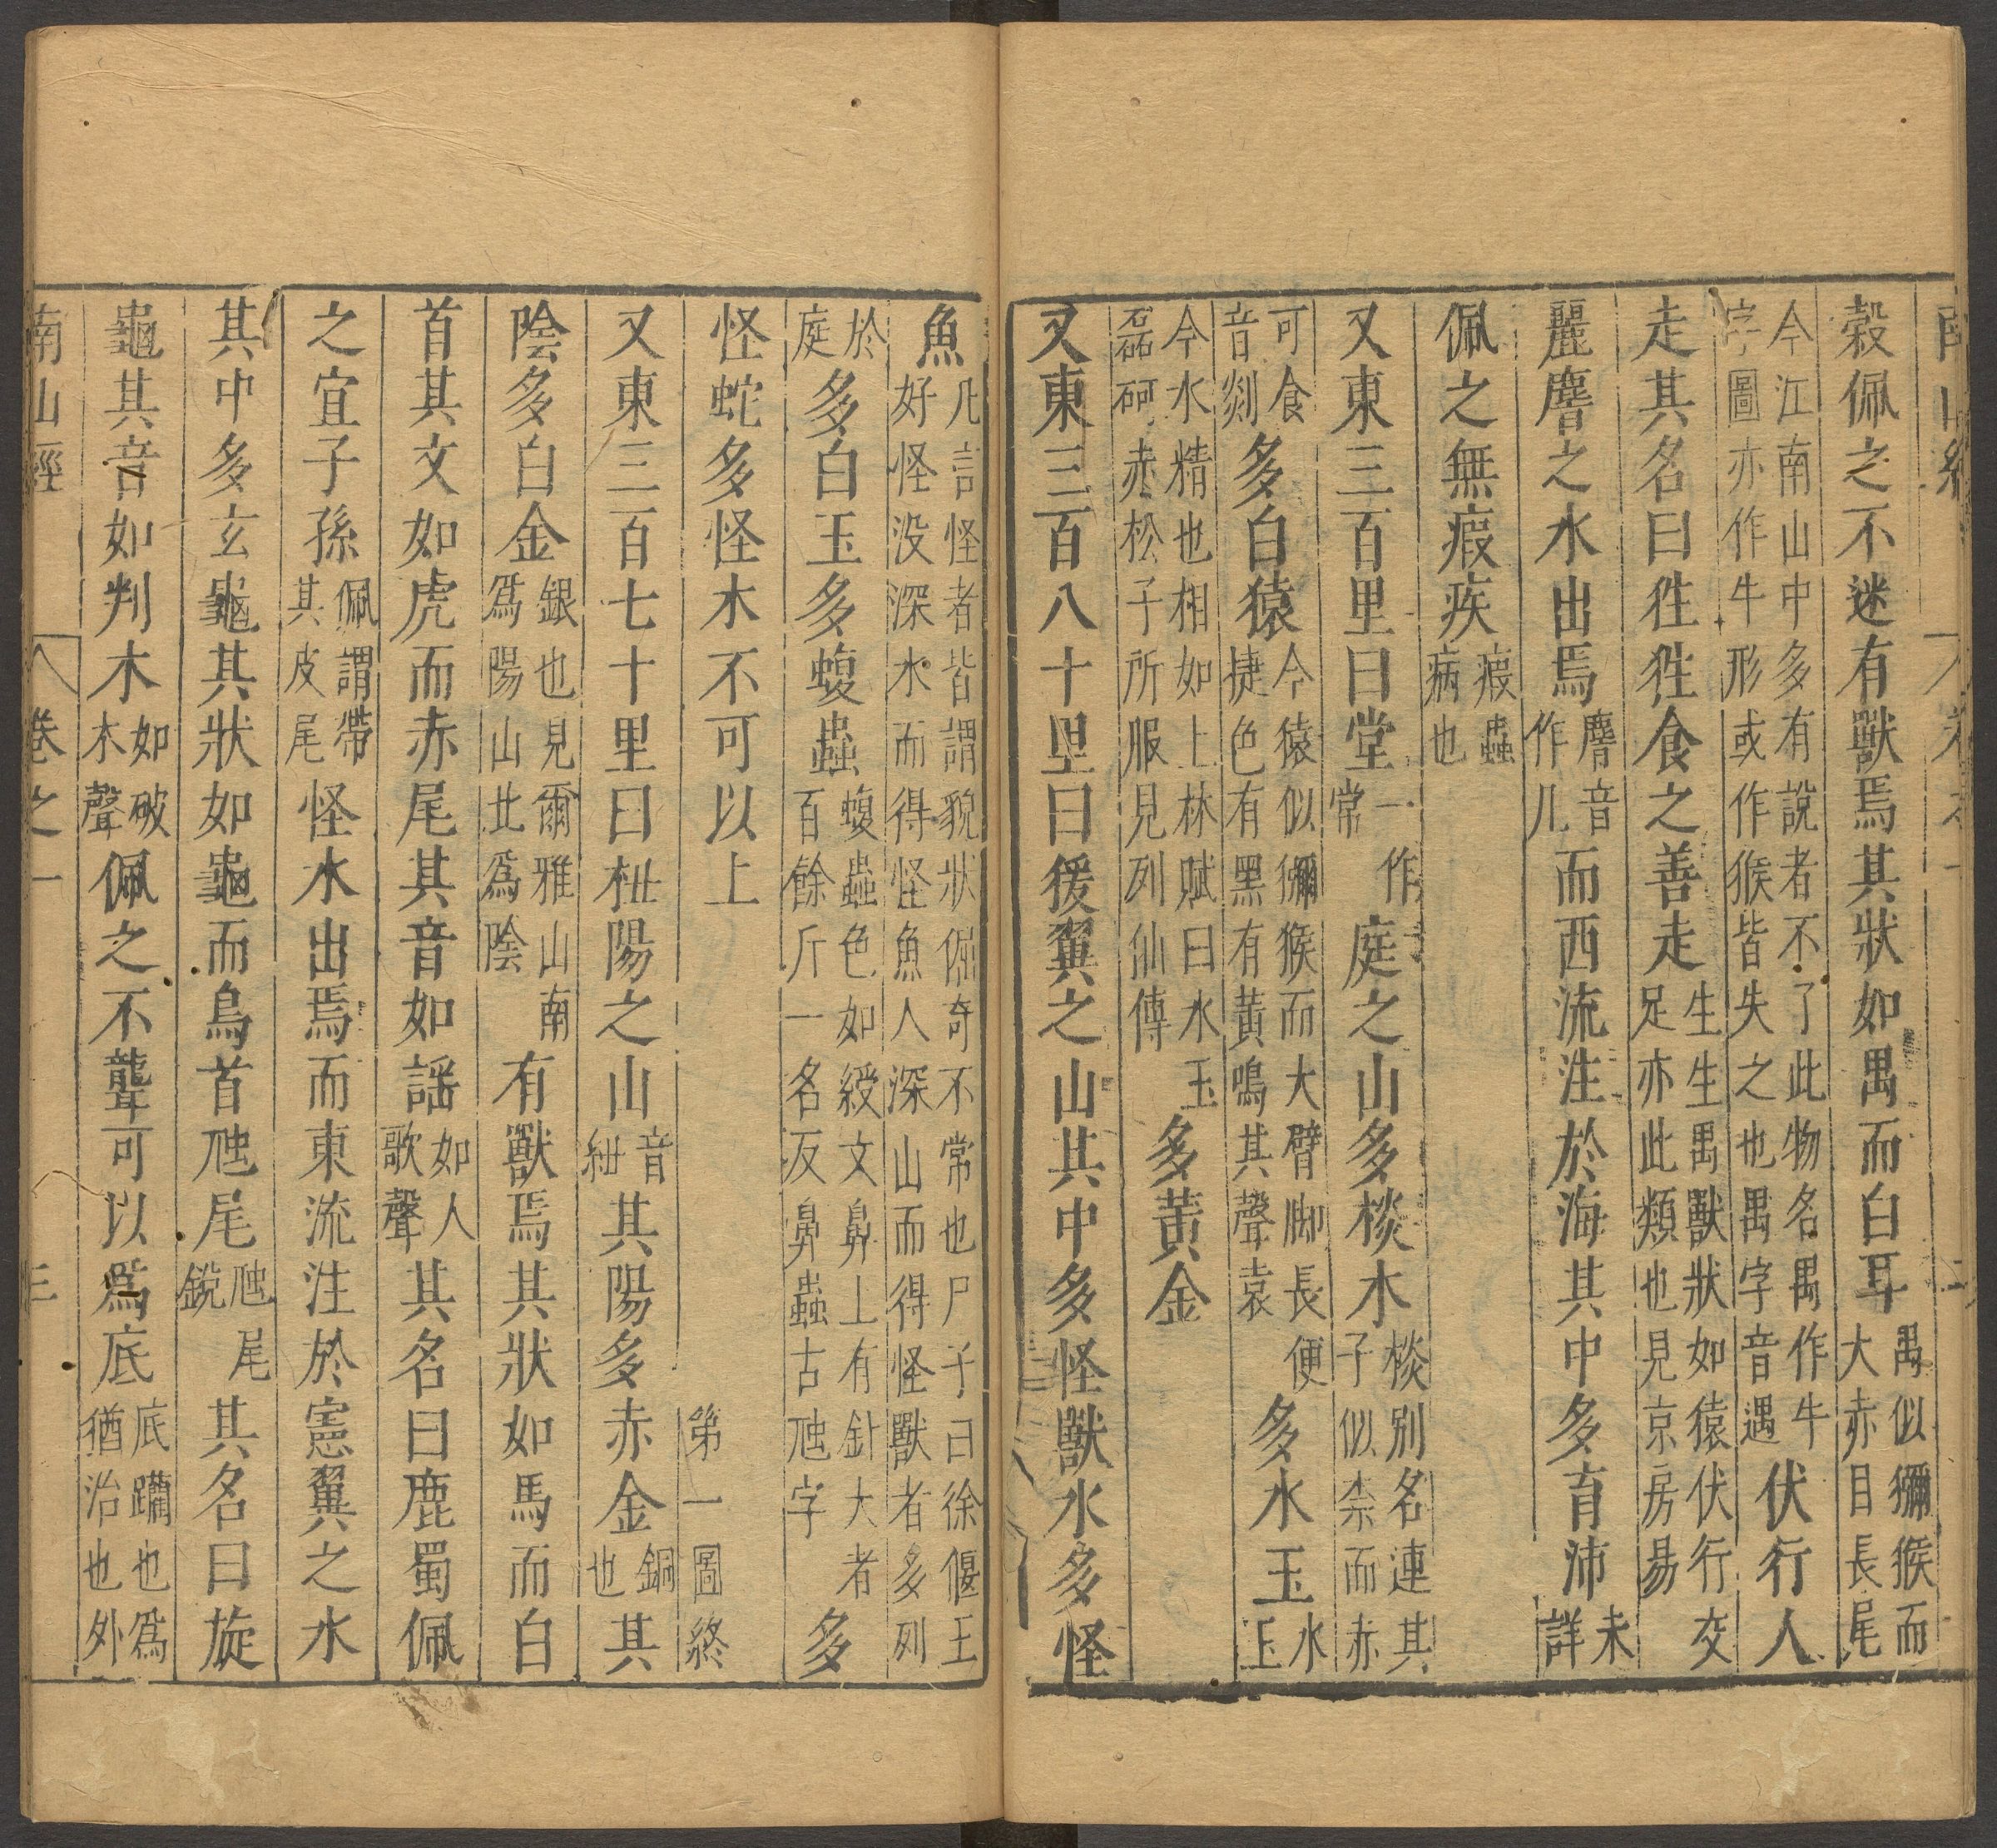 南山經
卷之一
二
穀佩之不迷有獸焉其狀如禺而白耳禺似獼猴而大赤目長尾
今江南山中多有說者不了此物名禺作牛字圖亦作牛形或作猴皆失之也禺字音遇伏行人
走其名曰狌狌食之善走生生禺獸狀如猿伏行交足亦此類也見京房易
麗𪊨之水出焉𪊨音作几而西流注於海其中多育沛未詳
佩之無瘕疾瘕蟲病也
又東三百里曰堂一作常庭之山多棪木棪別名連其子似柰而赤
可食音剡多白猿今猿似獼猴而大臂脚長便捷色有黑有黃鳴其聲哀多水玉水玉
今水精也相如上林賦曰水玉磊砢赤松子所服見列仙傳多黃金
又東三百八十里曰猨翼之山其中多怪獸水多怪
魚凡言怪者皆謂貌狀倔奇不常也尸子曰徐偃王好怪没深水而得怪魚人深山而得怪獸者多列
於庭多白玉多蝮蟲蝮蟲色如綬文鼻上有針大者百餘斤一名反鼻蟲古虺字多
怪蛇多怪木不可以上
第一圖終
又東三百七十里曰杻陽之山音紐其陽多赤金銅也其
陰多白金銀也見爾雅山南爲陽山北爲陰有獸焉其狀如馬而白
首其文如虎而赤尾其音如謡如人歌聲其名曰鹿蜀佩
之宜子孫佩謂帶其皮尾怪水出焉而東流注於憲翼之水
其中多玄龜其狀如龜而鳥首虺尾虺尾銳其名曰旋
龜其音如判木如破木聲佩之不聾可以爲底底躪也爲猶治也外
南山經
卷之一
三